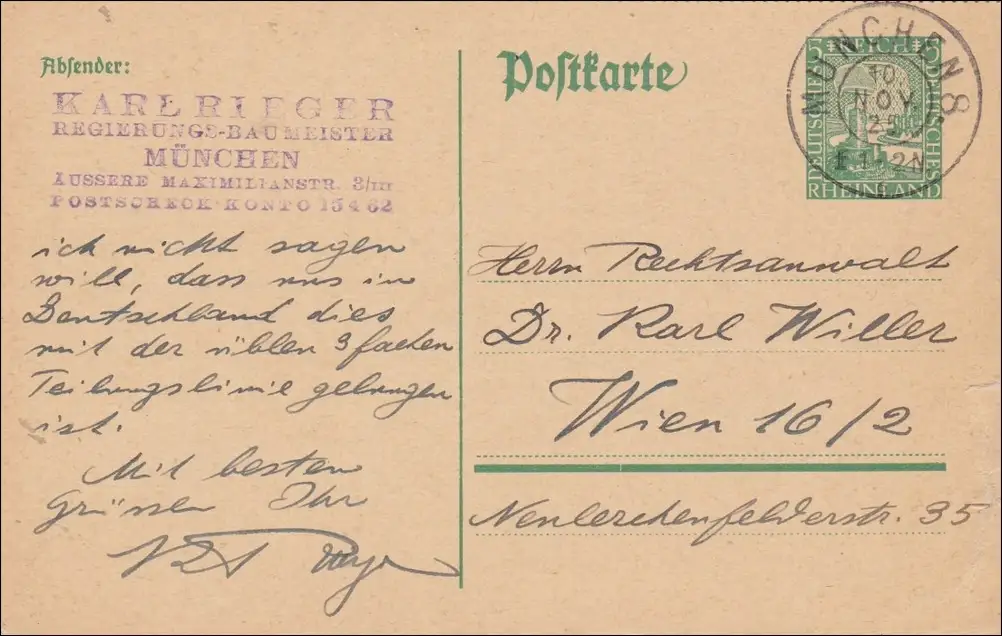 Absender:
KARL RIEGER
REGIERUNGS-BAUMEISTER
MÜNCHEN
ÄUSSERE MAXIMILIANSTR. 3/III
POSTSCHECK-KONTO 15462
ich nicht sagen
will, dass uns in
Deutschland dies
mit der üblen 3 fachen
Teilungslinie gelungen
ist.
Mit besten
Grüssen Ihr
Postkarte
5 REICH 5
DEUTSCHES
DEUTSCHES
RHEINLAND
MÜNCHEN 8
10.
NOV.
25
1-2N
Herrn Rechtsanwalt
Dr. Karl Willer
Wien 16/2
Neulerchenfelderstr. 35